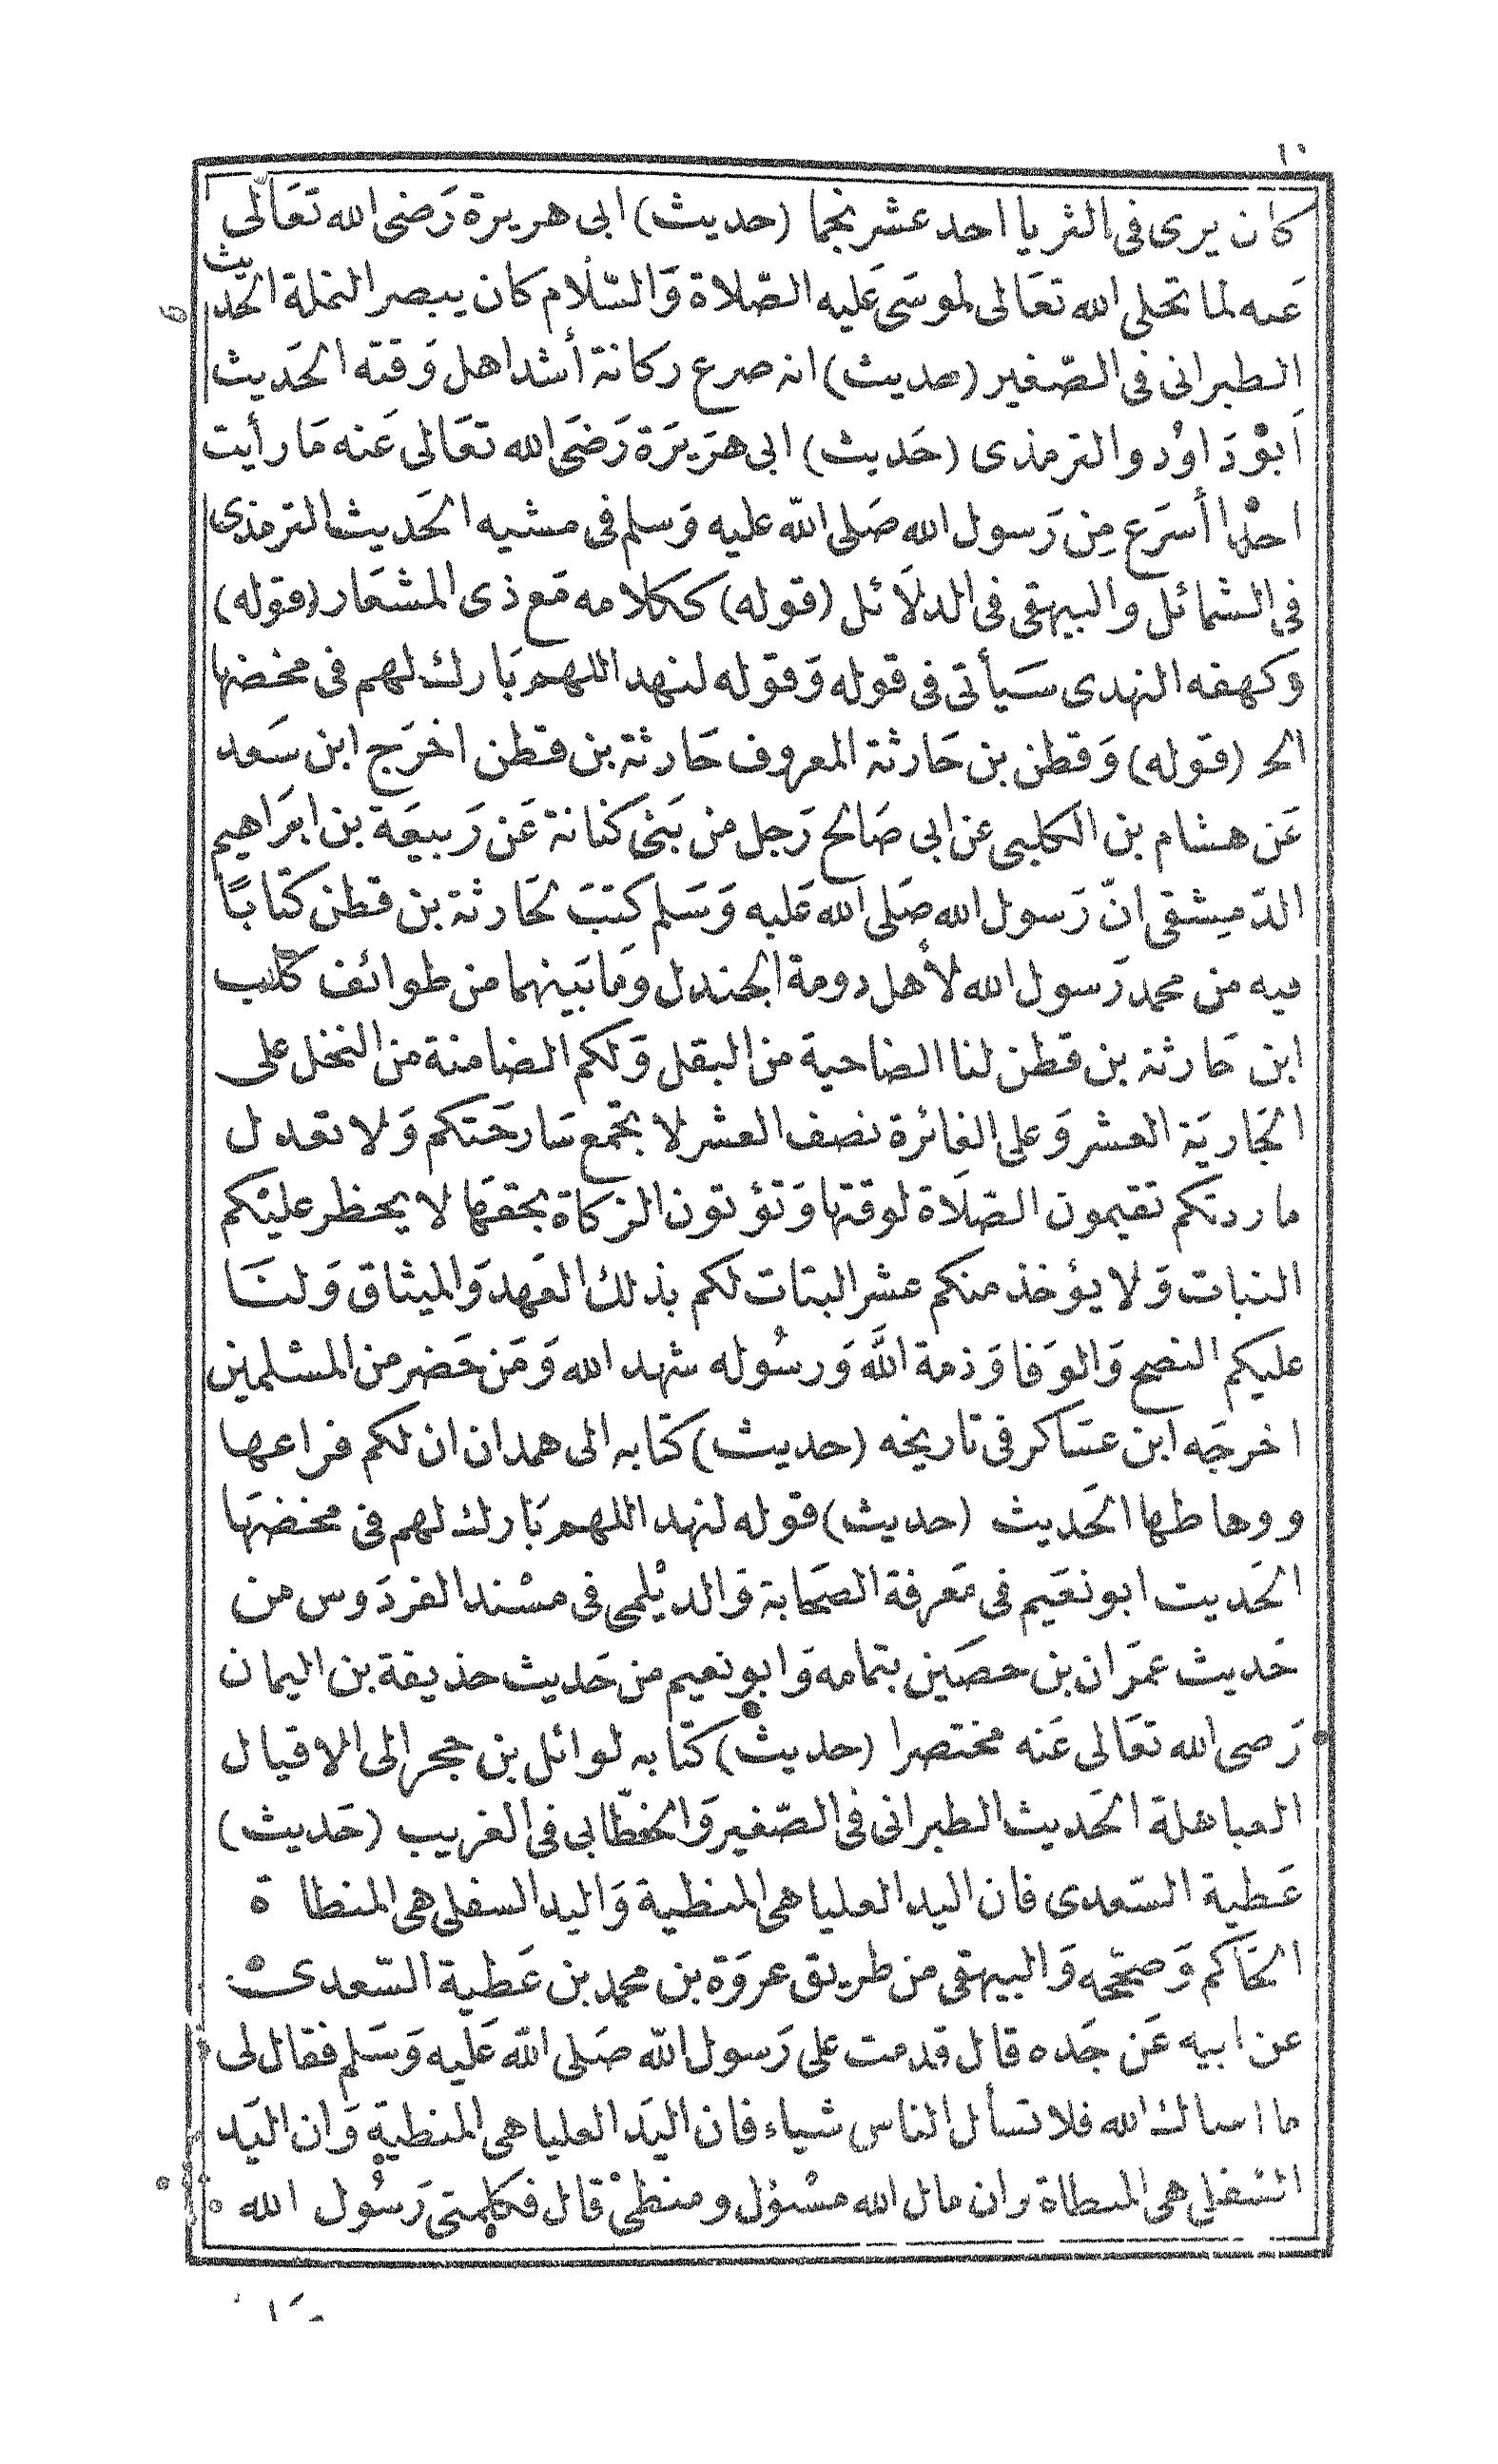 ١٠
كان يرى فى الثريا احد عشر نجما (حديث) ابى هريرة رَضى الله تعَالى
عَنه لما تجلى الله تعَالى لموسَى عَليه الصّلاة وَالسّلام كان يبصر النملة الحديث
الطبرانى فى الصّغير (حديث) انه صرع ركانة أشد اهل وَقته الحَديث
اَبوْ دَاوُد والترمذى (حَديث) ابى هرَيرَة رَضىَ الله تعَالى عَنه مَا رأيت
احدْا أسرَع مِن رَسول الله صَلى الله عليه وَسلم فى مشيه الحَديث الترمذى
فى الشمائل والبيهقى فى الدلَائل (قوله) ككلامه مَع ذى المشعَار (قوله)
وكهفه النهدى سَيأتى فى قوله وَقوَله لنهد اللهم بَارك لهم فى مخضها
الخ (قوَله) وَقطن بن حَارثة المعروف حَارثة بن قطن اخرَج ابن سَعد
عَن هشام بن الكلبى عن ابى صَالح رَجل من بَنى كنانة عَن رَبيعَة بن ابرَاهيم
الدّمِشقى انّ رَسول الله صَلى الله عَليه وَسَلم كتبَ لحَارثة بن قطن كتَابًا
فيه من محمد رَسول الله لأهل دومة الجندل وَمَا بَينهما من طوائف كلب
ابن حَارثة بن قطن لنا الضاحية من البقل وَلكم الضامنة من النخل على
الجَاريَة العشر وَعلى الغائرة نصف العشر لا تجمّع سَارحَتكم وَلا تعدل
ماردتكم تقيمون الصّلَاة لوقتها وَتؤتون الزكاة بحقهَا لا يحظر عليْكم
النبات وَلا يؤخذ منكم عشر البتات لكم بذلك العَهد وَالميثاق وَلنَا
عليكم النصح وَالوَفا وَذمة اللَّه وَرسُوله شهد الله وَمَن حَضر من المسْلمين
اخرجَه ابن عسَاكر فى تاريخه (حديث) كتابه الى همدان ان لكم فراعها
ووهاطها الحَديث (حديث) قوله لنهد اللهم بَارك لهم فى مخضهَا
الحَديث ابو نعَيم فى مَعرفة الصَحابة وَالديْلمى فى مسْند الفردَوس من
حَديث عمرَان بن حصَين بتمامه وَابو نعيم من حَديث حذيفة بن اليمان
رَضى الله تعَالى عَنه مختصرا (حديث) كتابه لوائل بن حجر الى الاقيال
العباهلة الحَديث الطبرانى فى الصّغير وَالخطّابى فى الغريب (حَديث)
عَطية السّعدى فان اليد العليا هى المنطية وَاليد السفلى هى المنطاة
الحَاكم وَصحّحه وَالبيهقى من طريق عروَة بن محمد بن عَطية السّعدى
عن ابيه عَن جَده قال قدمت على رَسول الله صَلى الله عَليه وَسَلم فقال لى
ما اسالك الله فلا تسأل الناس شياء فان اليَد العليا هى المنطية وَان اليَد
السّفلى هى المنطاة وان مال الله مسْؤل ومنطىْ قال فكلمنى رَسُول الله